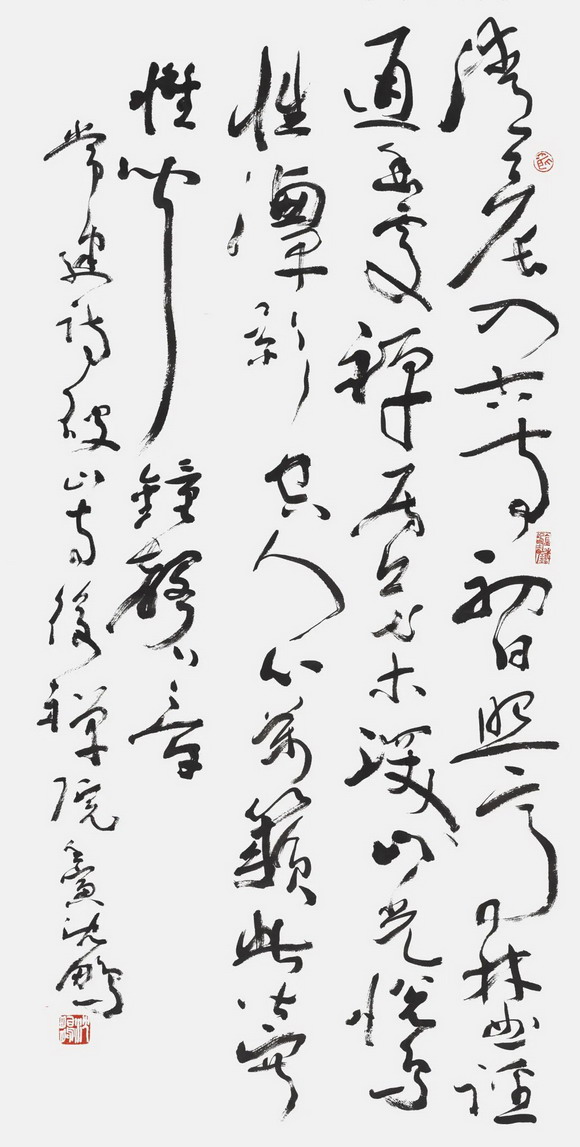 清晨入古寺初日照高林曲徑
通幽處禪房花木深山光悅鳥
性潭影空人心萬籟此皆寂
惟聞鐘磬音
常建詩破山寺後禪院 沈鵬